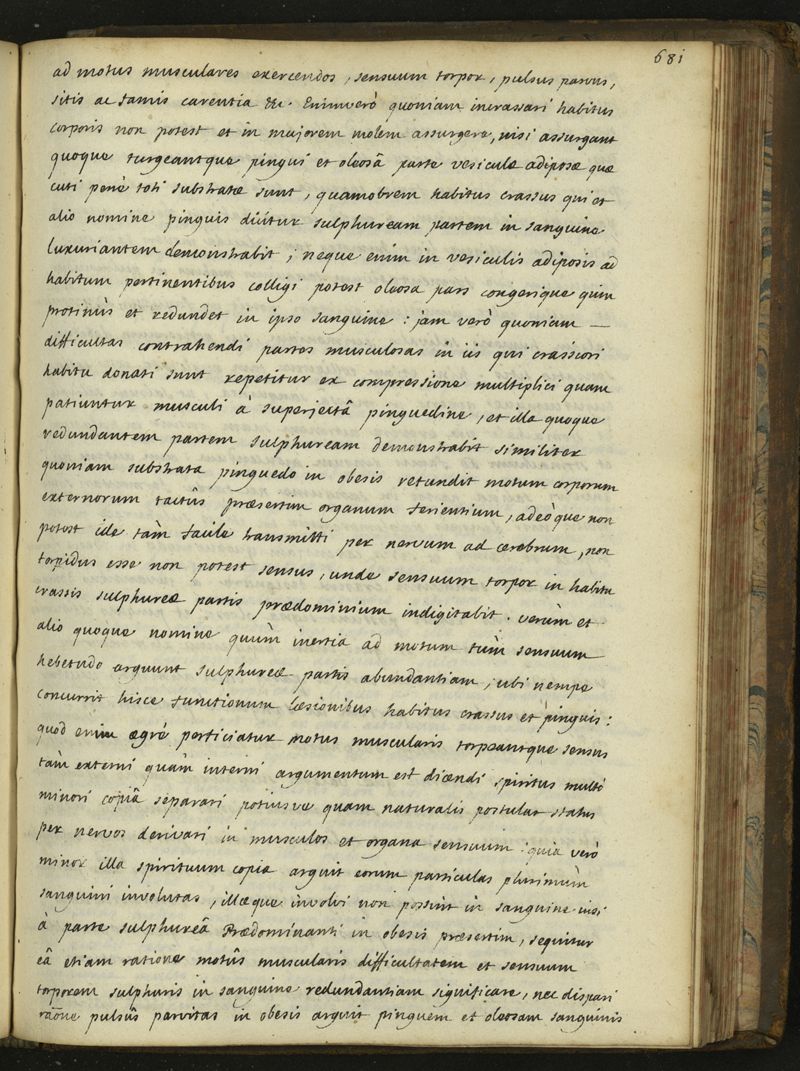 681
ad motus musculares exercendos, sensuum torpor, pulsus parvus,
sitis ac famis carentia &c. Enimverò quoniam incrassari habitus
corporis non potest et in majorem molem assurgere, nisi assurgant
quoque turgeantque pingui et oleosâ parte vesiculæ adiposæ quæ
cuti penè toti substratæ sunt, quamobrem habitus crassus qui et
alio nomine pinguis dicitur sulphuream partem in sanguine
luxuriantem demonstrabit; neque enim in vesiculis adiposis ad
habitum pertinentibus colligi potest oleosa pars congerique quin
protinùs et redundet in ipso sanguine: jam verò quoniam —
difficultas contrahendi partes musculosas in iis qui crassiori
habitu donati sunt repetitur ex compressione multiplici quam
patiuntur musculi à superjectâ pinguedine, et illa quoque
redundantem partem sulphuream demonstrabit similiter
quoniam substrata pinguedo in obesis retundit motum corporum
externorum tactûs præsertim organum ferientium, adeòque non
potest ille tàm facile transmitti per nervum ad cerebrum, non
torpidus esse non potest sensus, unde sensuum torpor in habitu
crassis sulphureæ partis prædominium indigitabit. verùm et
alio quoque nomine quùm inertia ad motum tùm sensuum
hebetudo arguunt sulphureæ partis abundantiam, ubi nempe
concurrit hisce functionum læsionibus habitus crassus et pinguis:
quod enim ægrè perficiatur motus muscularis torpeantque sensus
tàm externi quàm interni argumentum est dicendi spiritus multò
minori copiâ separari potiusve quam naturalis postulat status
per nervos derivari in musculos et organa sensuum: quia verò
minor illa spirituum copia arguit eorum particulas plurimùm
sanguini involutas, illæque involvi non possint in sanguine nisi
à parte sulphureâ Prædominanti in obesis præsertim, sequitur
eâ etiam ratione motûs muscularis difficultatem et sensuum
torporem sulphuris in sanguine redundantiam significare, nec dispari
raõne pulsûs parvitas in obesis arguit pinguem et oleosam sanguinis